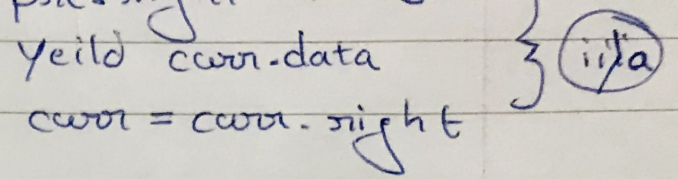 yeild curr.data } ii/a
curr = curr.right